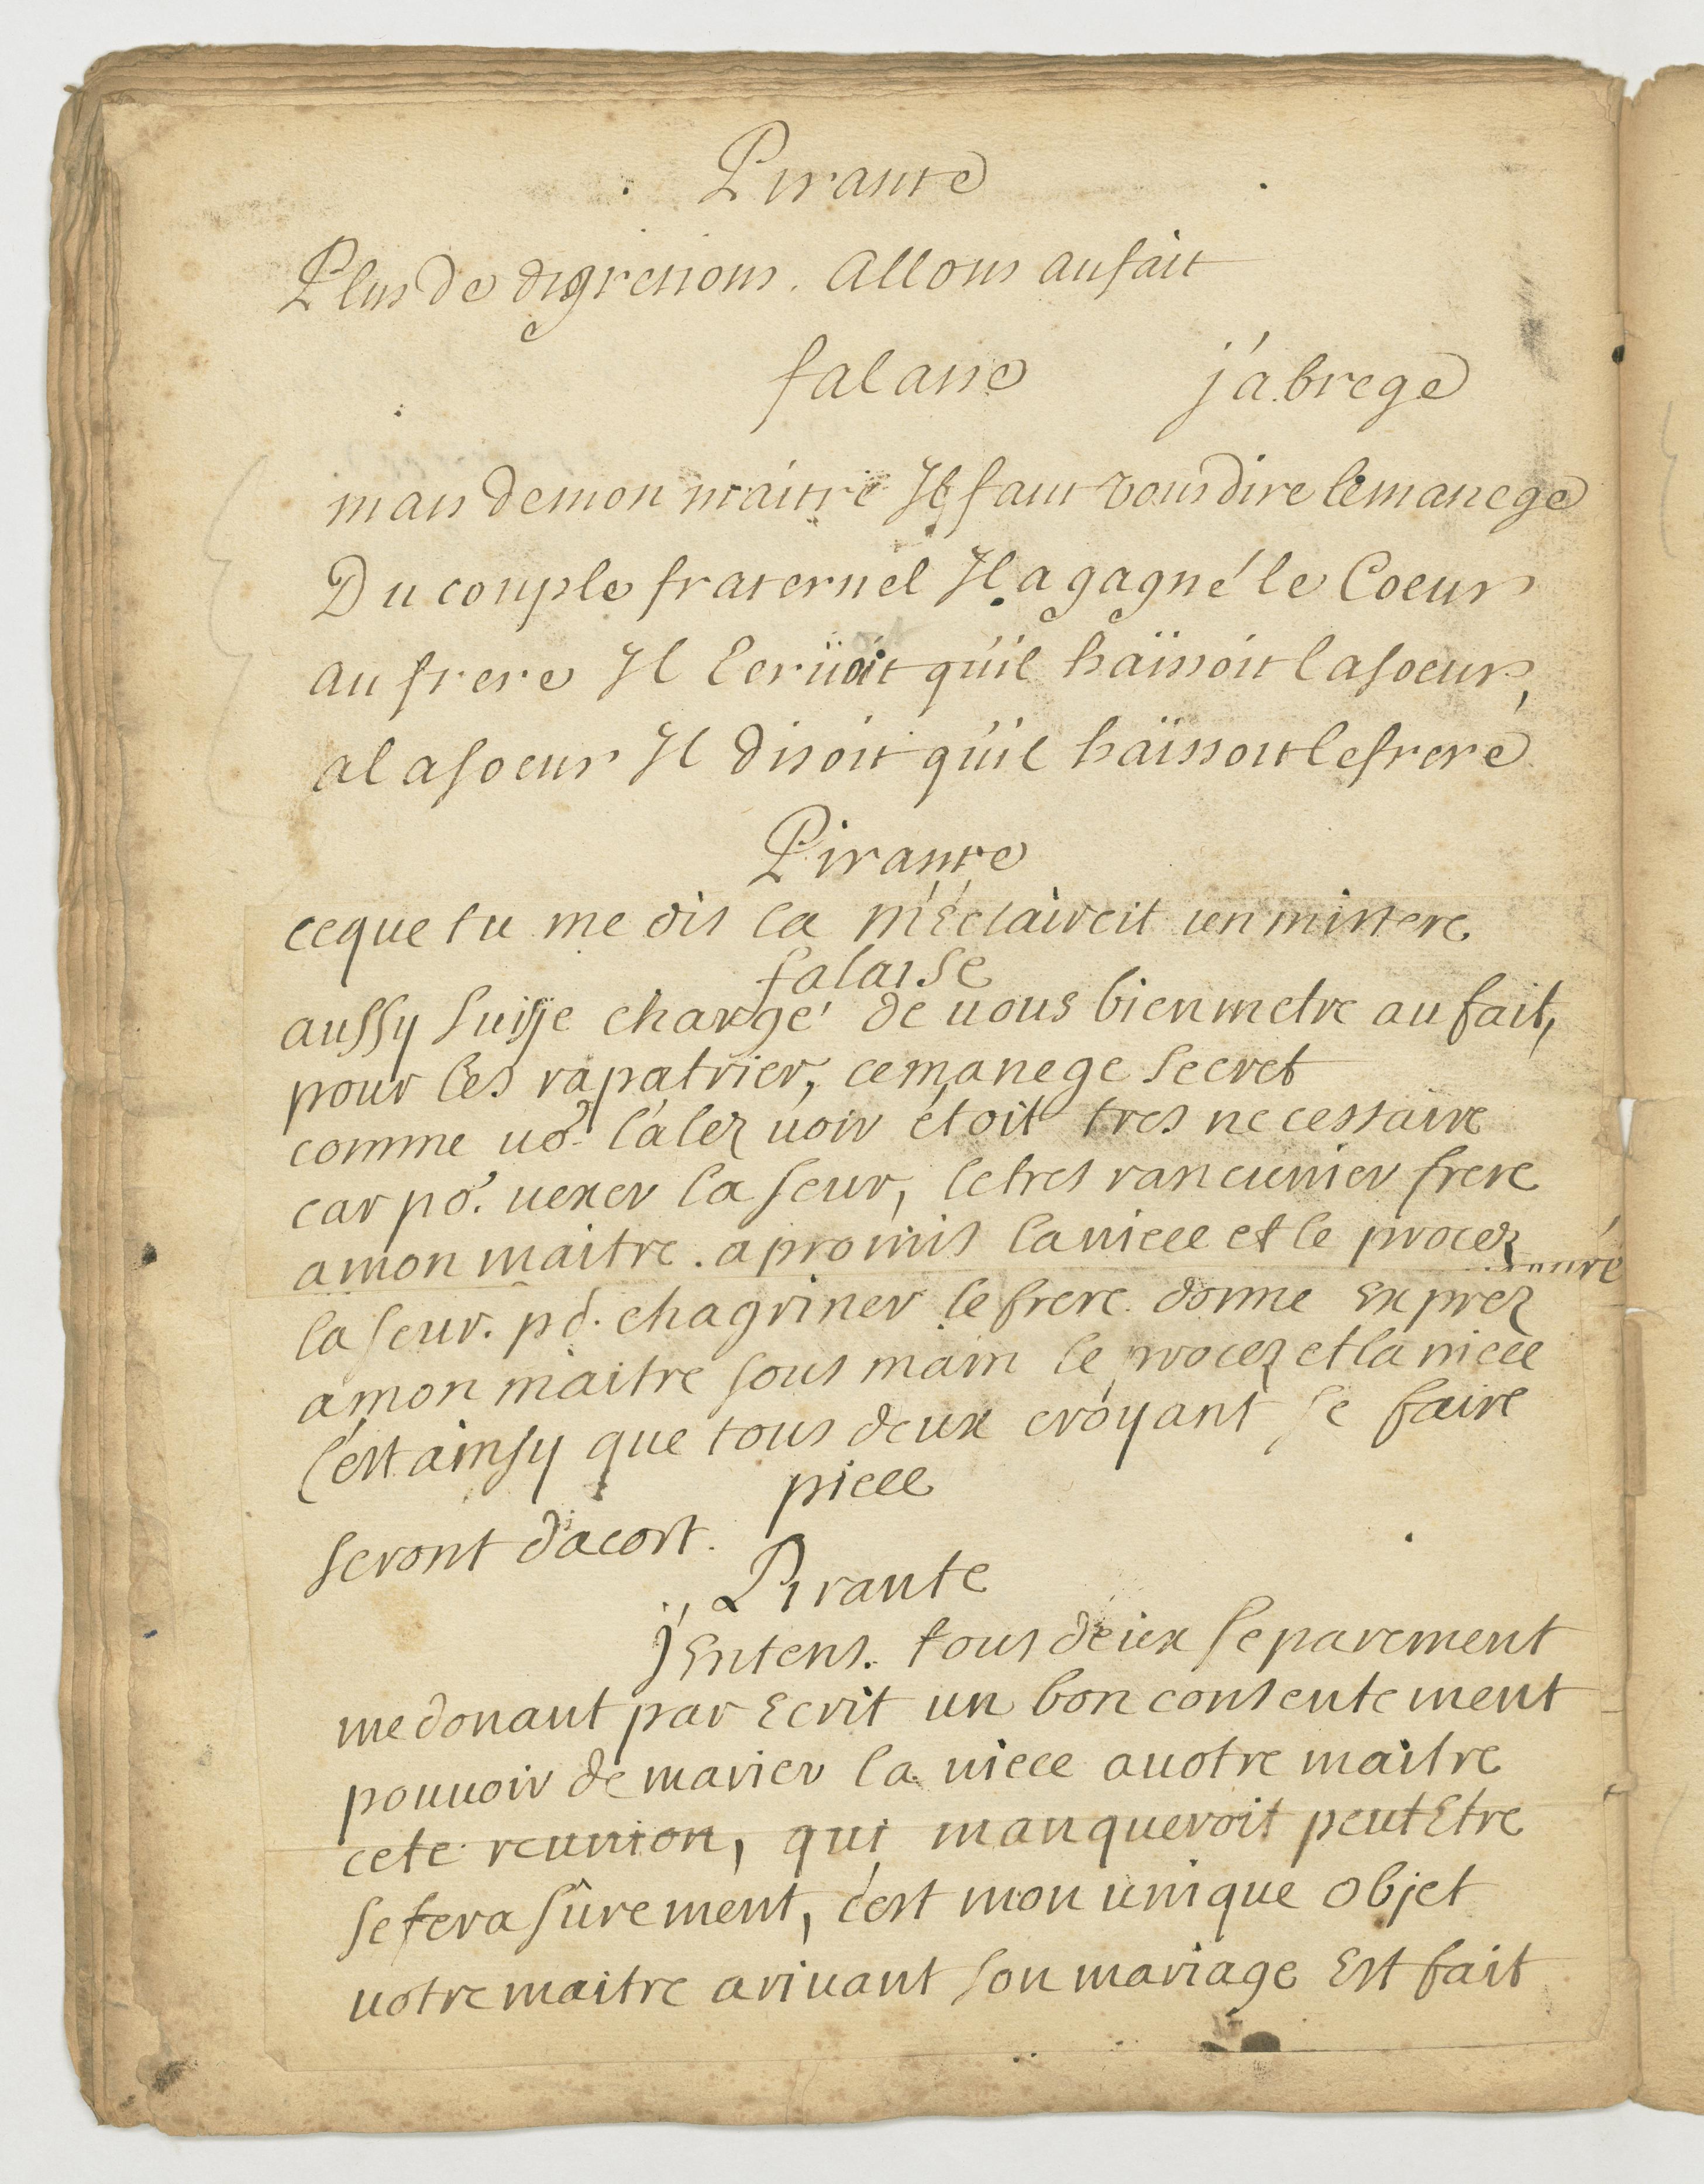 Pirante
Plus de digresions. allons au fait
falaise j'abrege
mais de mon maitre Il faut vous dire le manege
Du couple fraternel Il a gagné le Coeur
au frere Il Ecriüoit qu'il haïssoit la soeur,
a la soeur Il disoit qu'il haïssoit le frere
Pirante
ce que tu me dis la m'Eclaircit un mistere
falaise
aussy suisje chargé de uous bien metre au fait,
pour les rapatrier, ce manege secret
comme uo.s l'alez uoir étoit tres necessaire
car po.r uexer la seur, le tres rancunier frere
a mon maitre. a promis la niece et le procez
la seur. po.r chagriner le frere donne Exprez
a mon maitre sous main le procez et la niece
C'est ainsy que tous deux croyant se faire
piece
seront d'acort.
Pirante
j'Entens. tous deux separement
me donant par Ecrit un bon consentement
pouuoir de marier la niece a uotre maitre
cete reunion, qui manqueroit peut Etre
se fera sûrement, c'est mon unique objet
uotre maitre ariuant son mariage Est fait